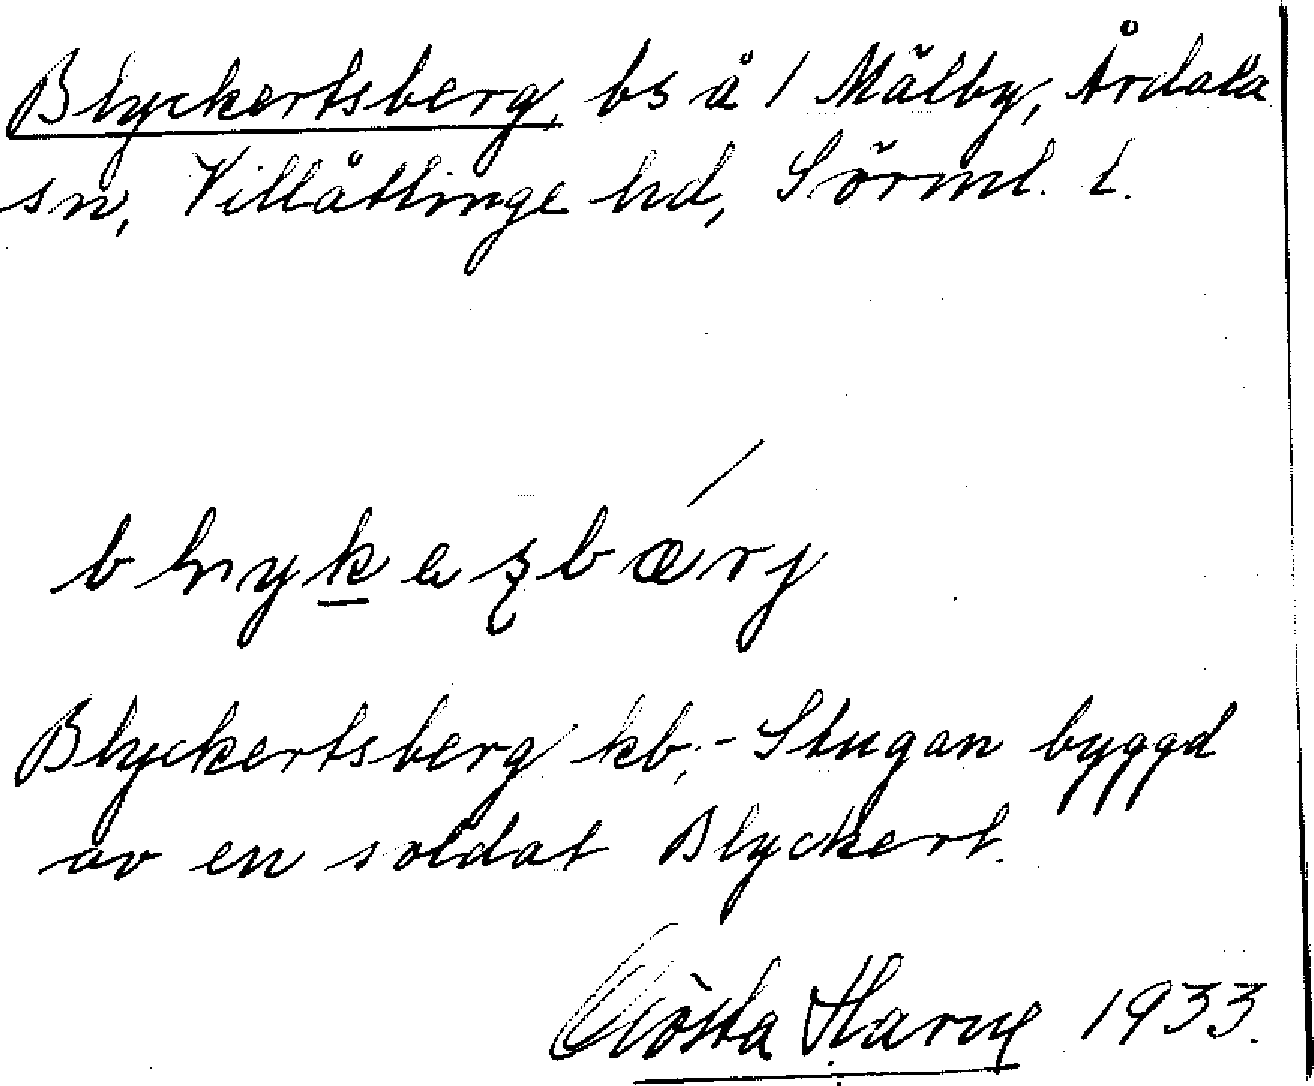 Blyckertsberg, bs å 1 Mälby, Årdala
sn, Villåttinge hd, Sörml. l.
Blyckertsberg kb.- Stugan byggd
av en soldat Blyckert.
Gösta 1933.